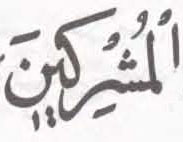 الْمُشْرِكِينَ